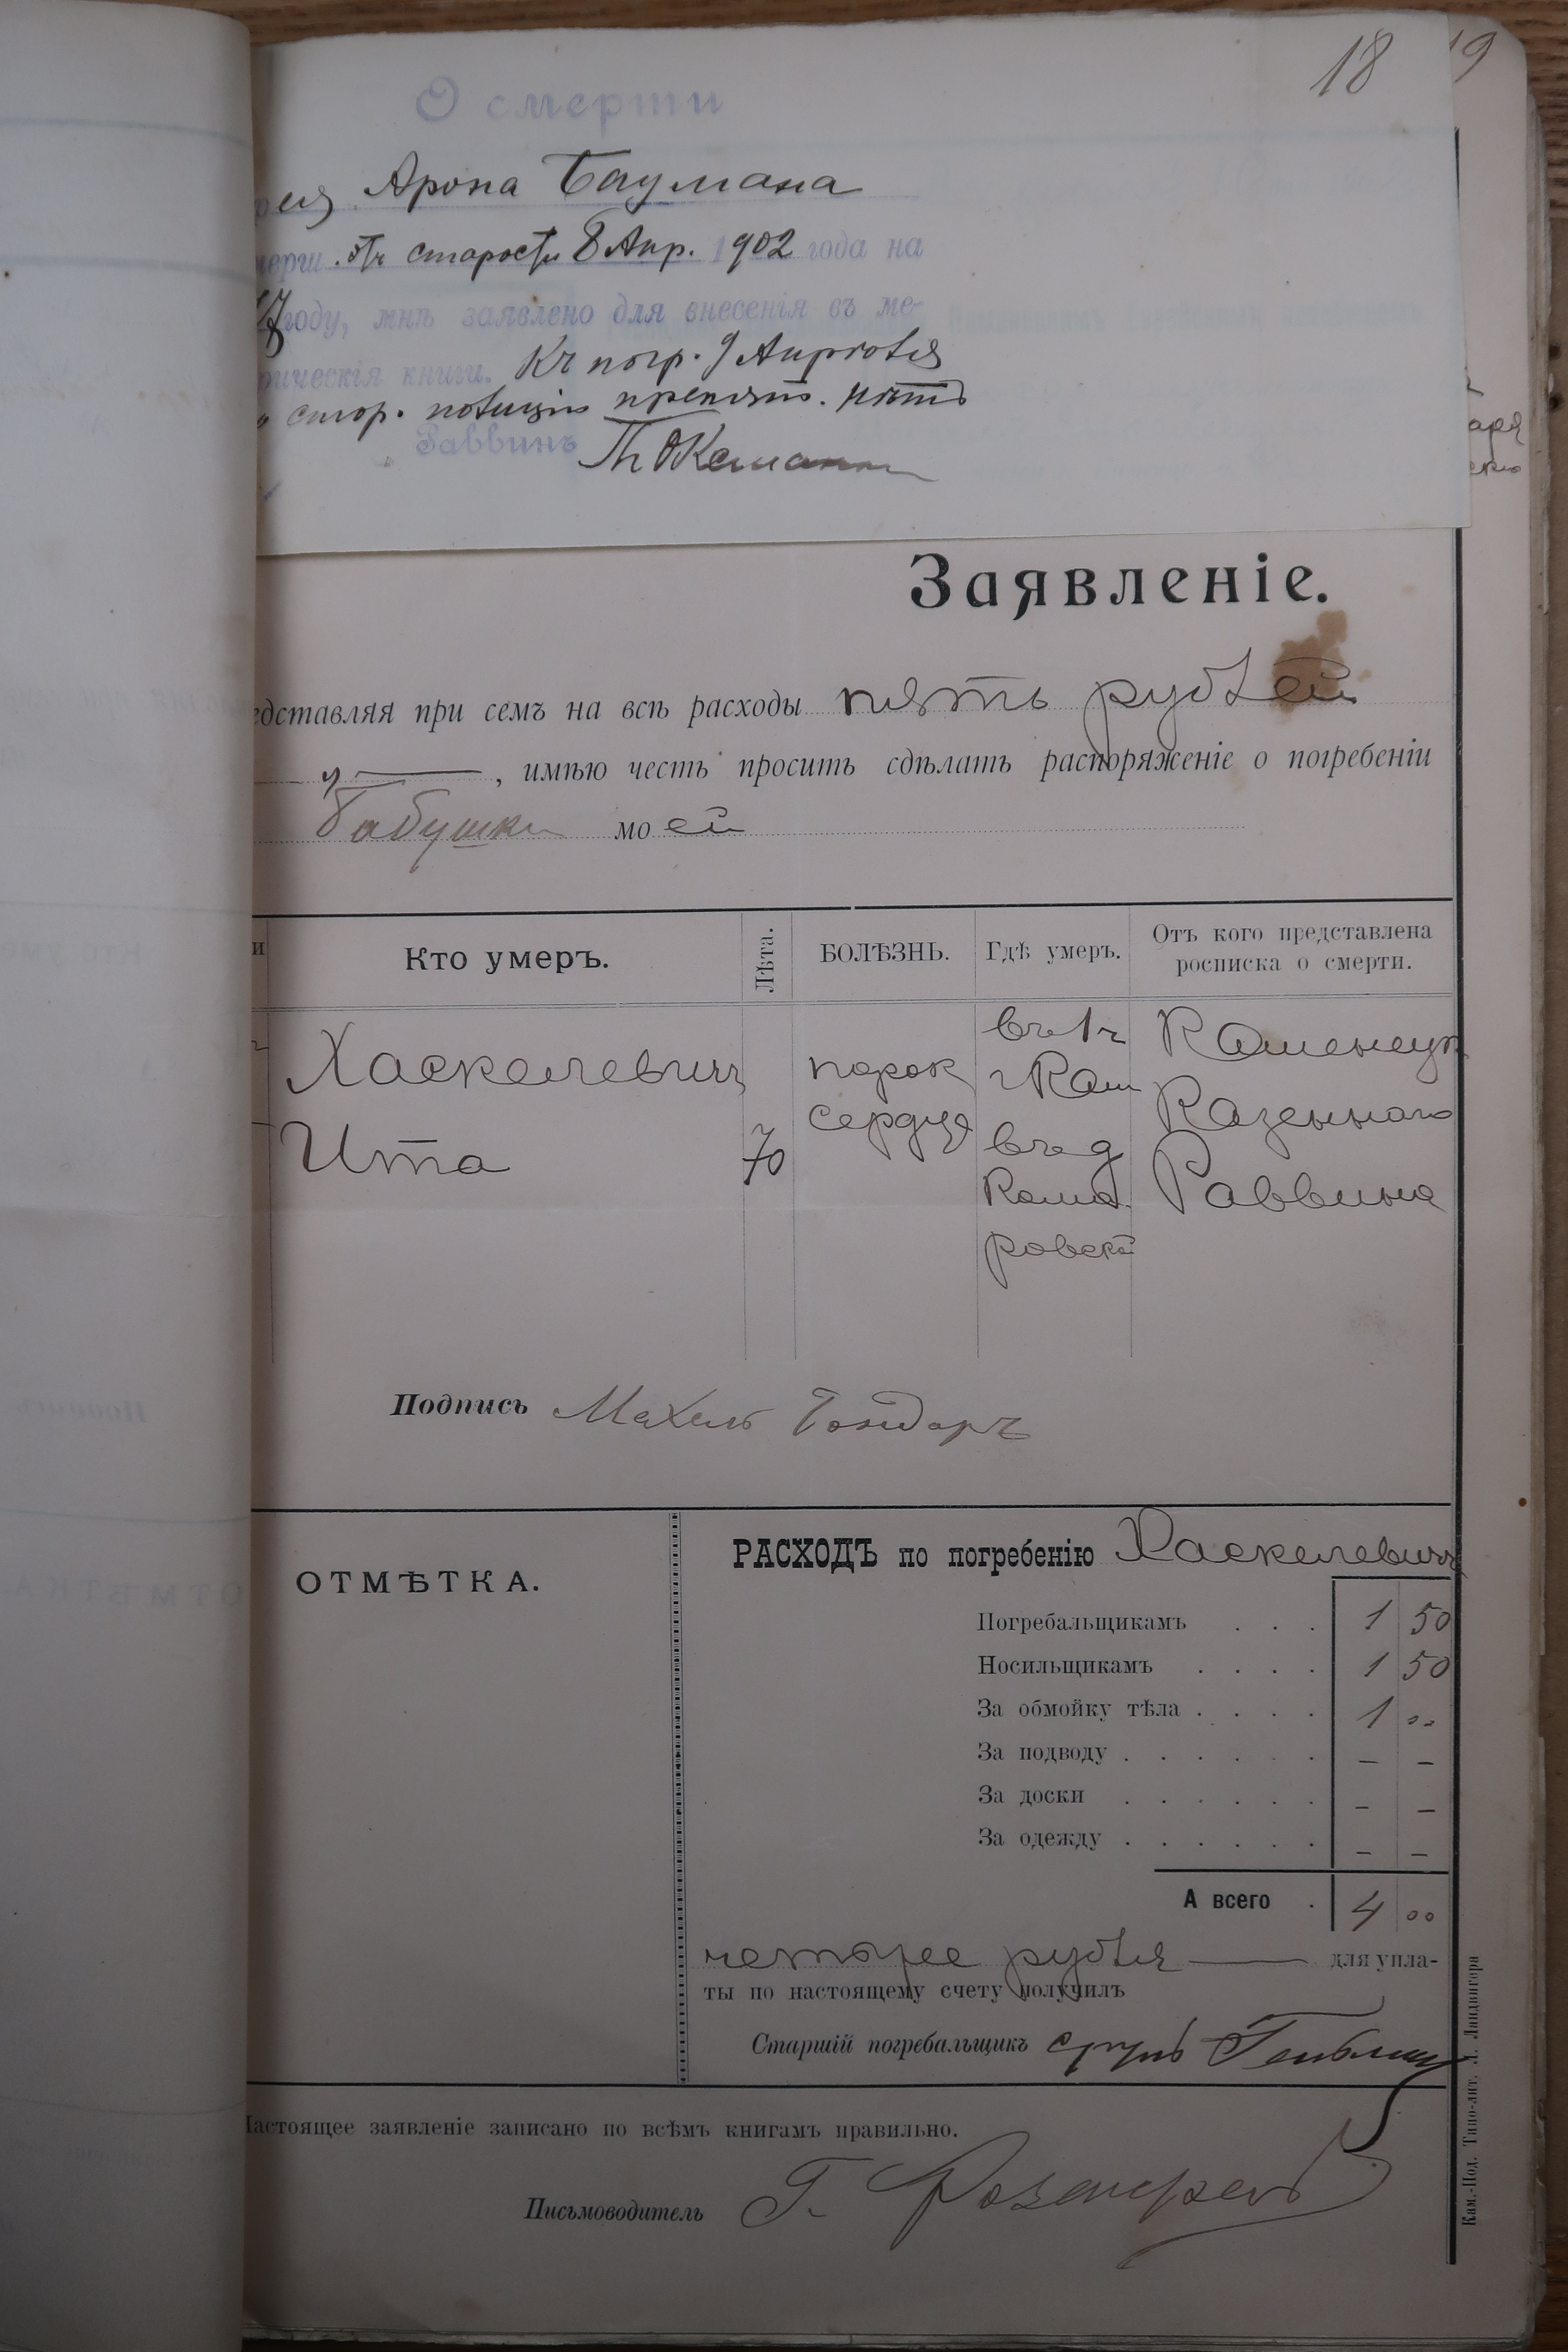 18
19
О смерти
Арона Баумана
отъ старости 8 Апр. 1902 года на
году, мнѣ заявлено для внесенія въ ме-
рическія книги. Къ погр. 9 Апрѣля
стор. полиціи препятс. нѣтъ
Раввинъ
Заявленіе.
едставляя при семъ на всѣ расходы пять рублей
, имѣю честь просить сдѣлать распоряженіе о погребеніи
бабушки моей
Кто умеръ.
Лѣта.
БОЛѢЗНЬ.
Гдѣ умеръ.
Отъ кого представлена
росписка о смерти.
Хаскелевичъ
Ита
70
порок
сердца
въ 1 ч
г Кам
въ д
Кома
ровской
Каменецк
Казеннаго
Раввина
Подпись Махель Бондарь
ОТМѢТКА.
РАСХОДЪ по погребенію Хаскелевичъ
Погребальщикамъ . . . 1 50
Носильщикамъ . . . . 1 50
За обмойку тѣла . . . . 1 ..
За подводу . . . . . . – –
За доски . . . . . . – –
За одежду . . . . . . – –
А всего . 4 00
четырее рубля для упла-
ты по настоящему счету получилъ
Старшій погребальщикъ
Настоящее заявленіе записано по всѣмъ книгамъ правильно.
Письмоводитель Г.
Кам.-Под. Типо-лит. Л. Ландвигера